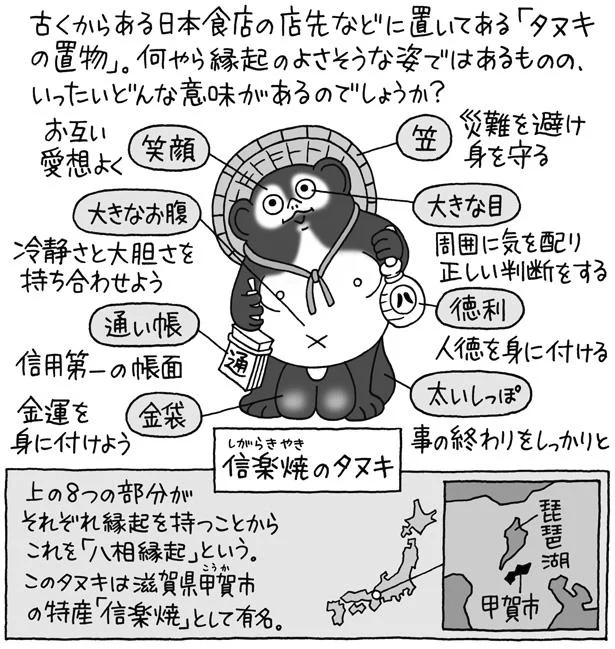 古くからある日本食店の店先などに置いてある「タヌキ
の置物」。何やら縁起のよさそうな姿ではあるものの、
いったいどんな意味があるのでしょうか？
笑顔
お互い
愛想よく
笠
災難を避け
身を守る
大きなお腹
冷静さと大胆さを
持ち合わせよう
大きな目
周囲に気を配り
正しい判断をする
通い帳
信用第一の帳面
徳利
人徳を身に付ける
金袋
金運を
身に付けよう
太いしっぽ
事の終わりをしっかりと
八
通
しがらきやき
信楽焼のタヌキ
上の8つの部分が
それぞれ縁起を持つことから
これを「八相縁起」という。
こうか
このタヌキは滋賀県甲賀市
の特産「信楽焼」として有名。
琵琶湖
甲賀市